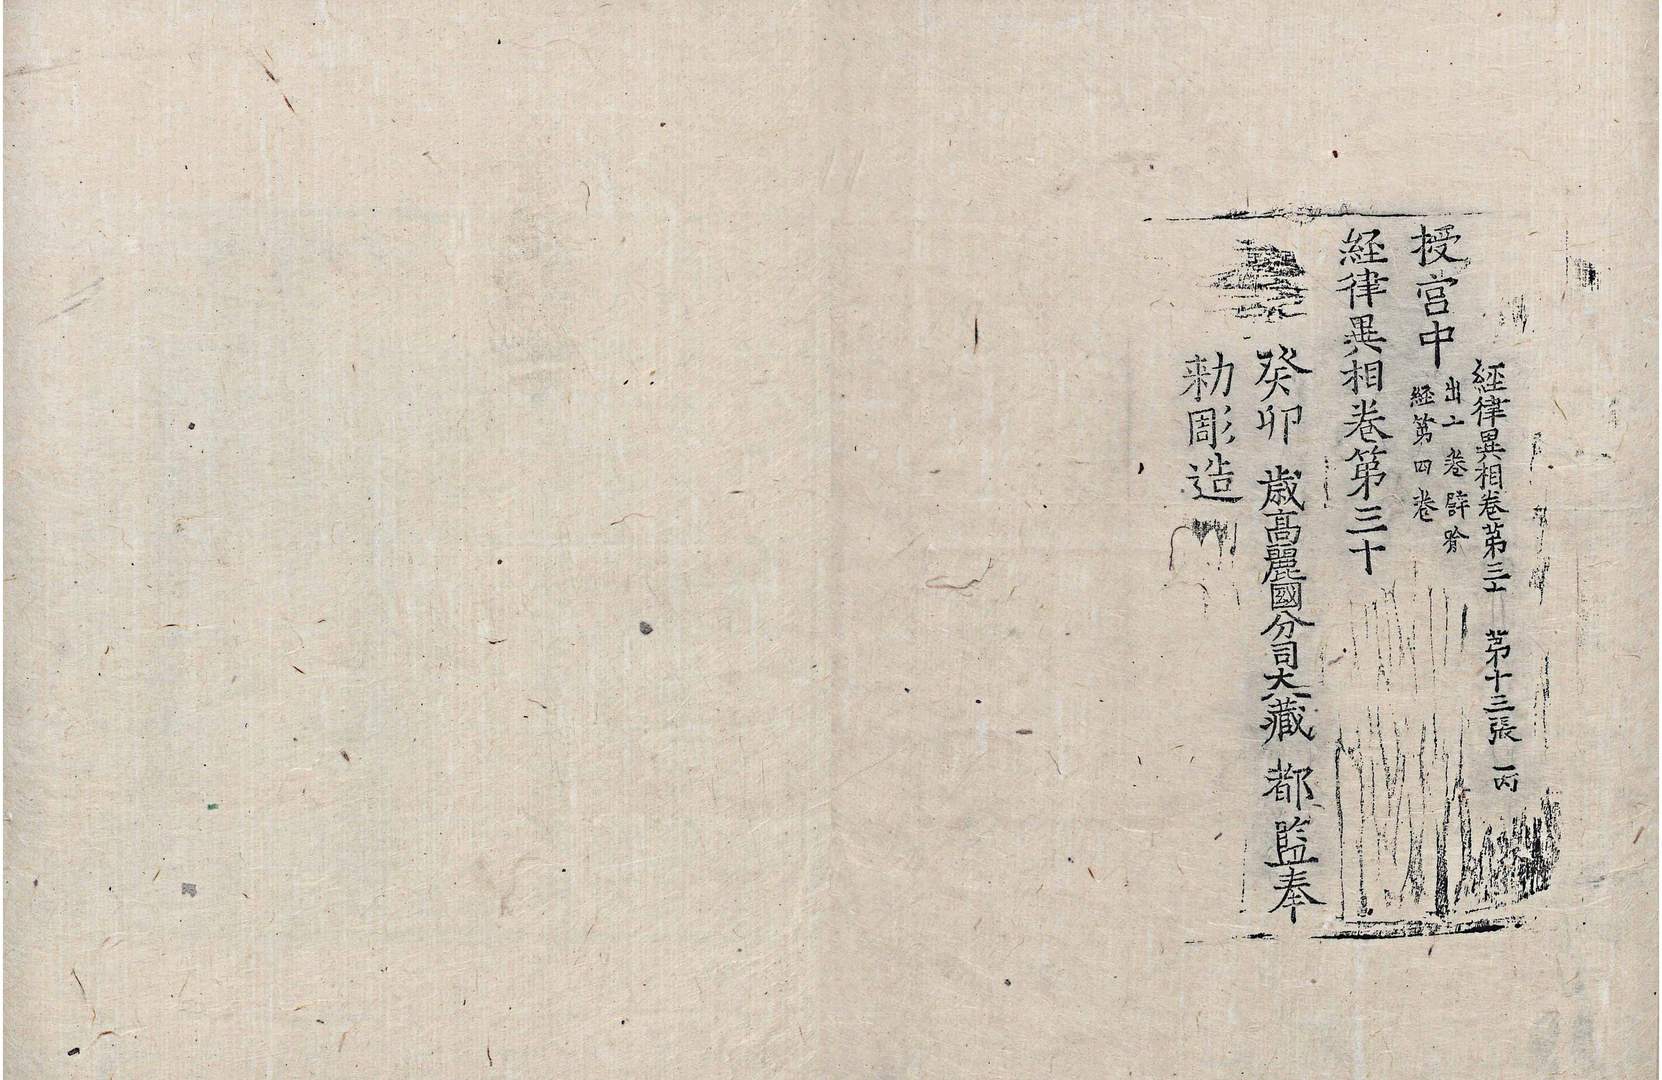 經律異相卷第三十 第十三張 丙
授宮中 出十卷譬喻
經第四卷
経律異相卷第三十
癸卯歲高麗國分司大藏都監奉
勑彫造